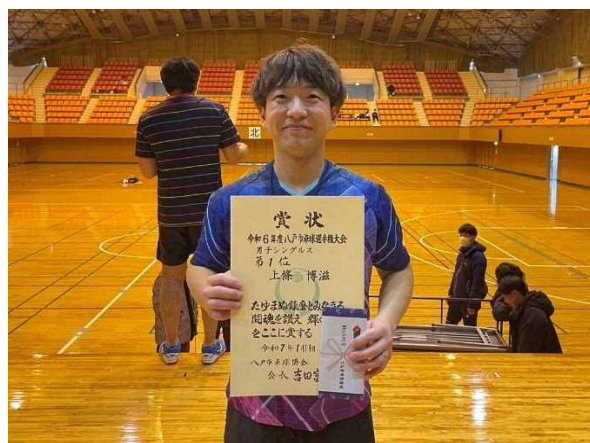 北
賞状
令和6年度八戸市卓球選手権大会
男子シングルス
第1位
上條 博滋
たゆまぬ鍛錬とみなぎる
闘魂を讃え
をここに賞する
令和7年1月
八戸市卓球協会
会長 吉田